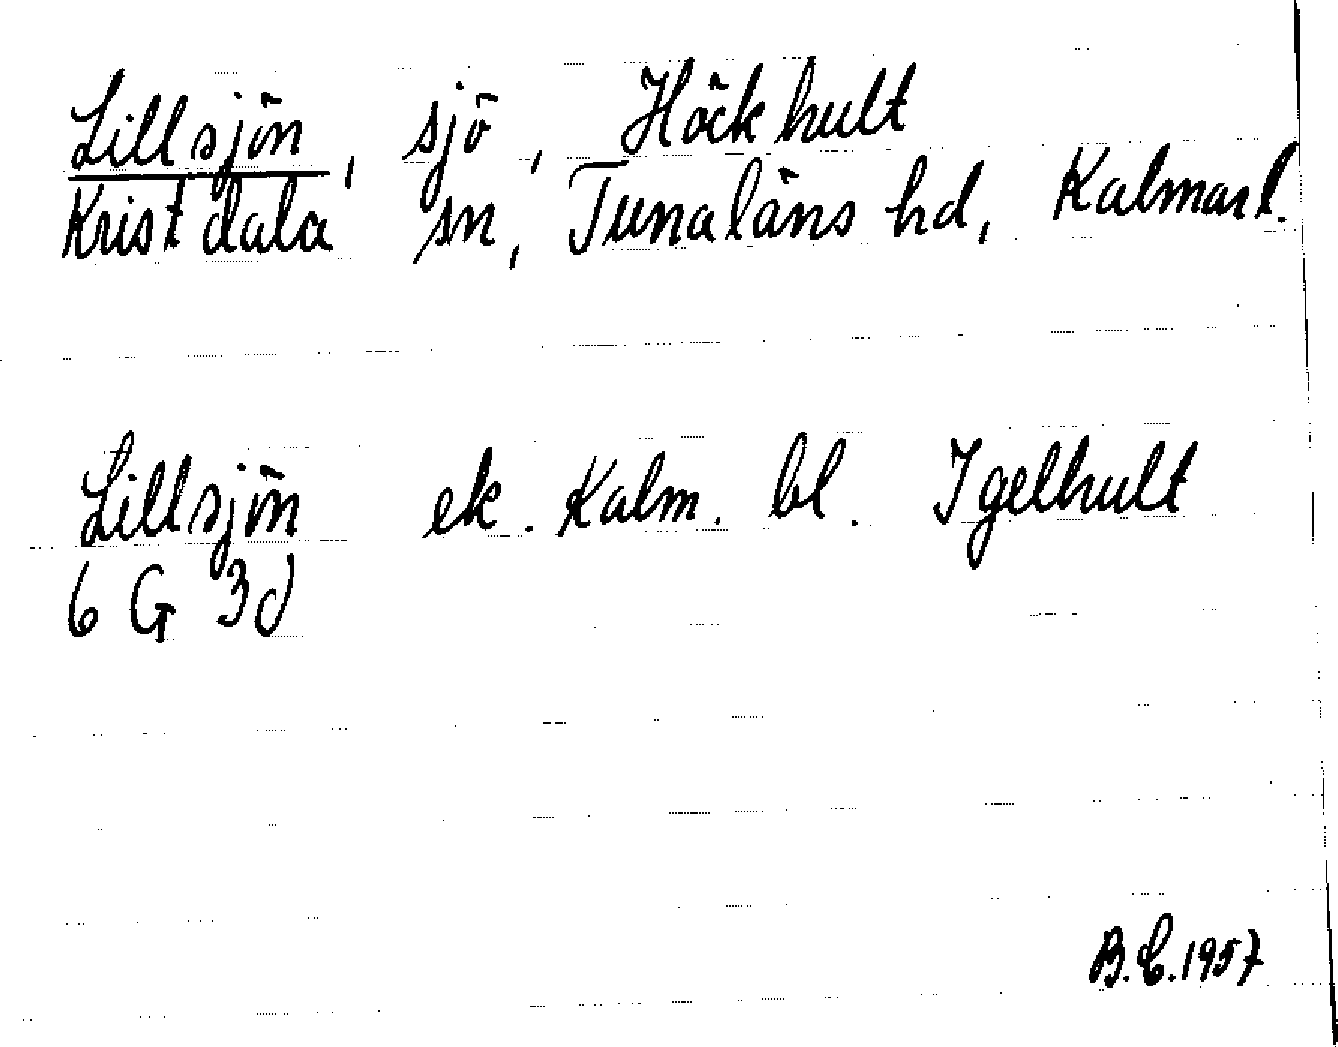 Lillsjön, sjö, Höckhult
Kristdala sn, Tunaläns hd, Kalmar l.
Lillsjön ek. Kalm. bl. Igelhult
6 G 3d
B.C. 1957